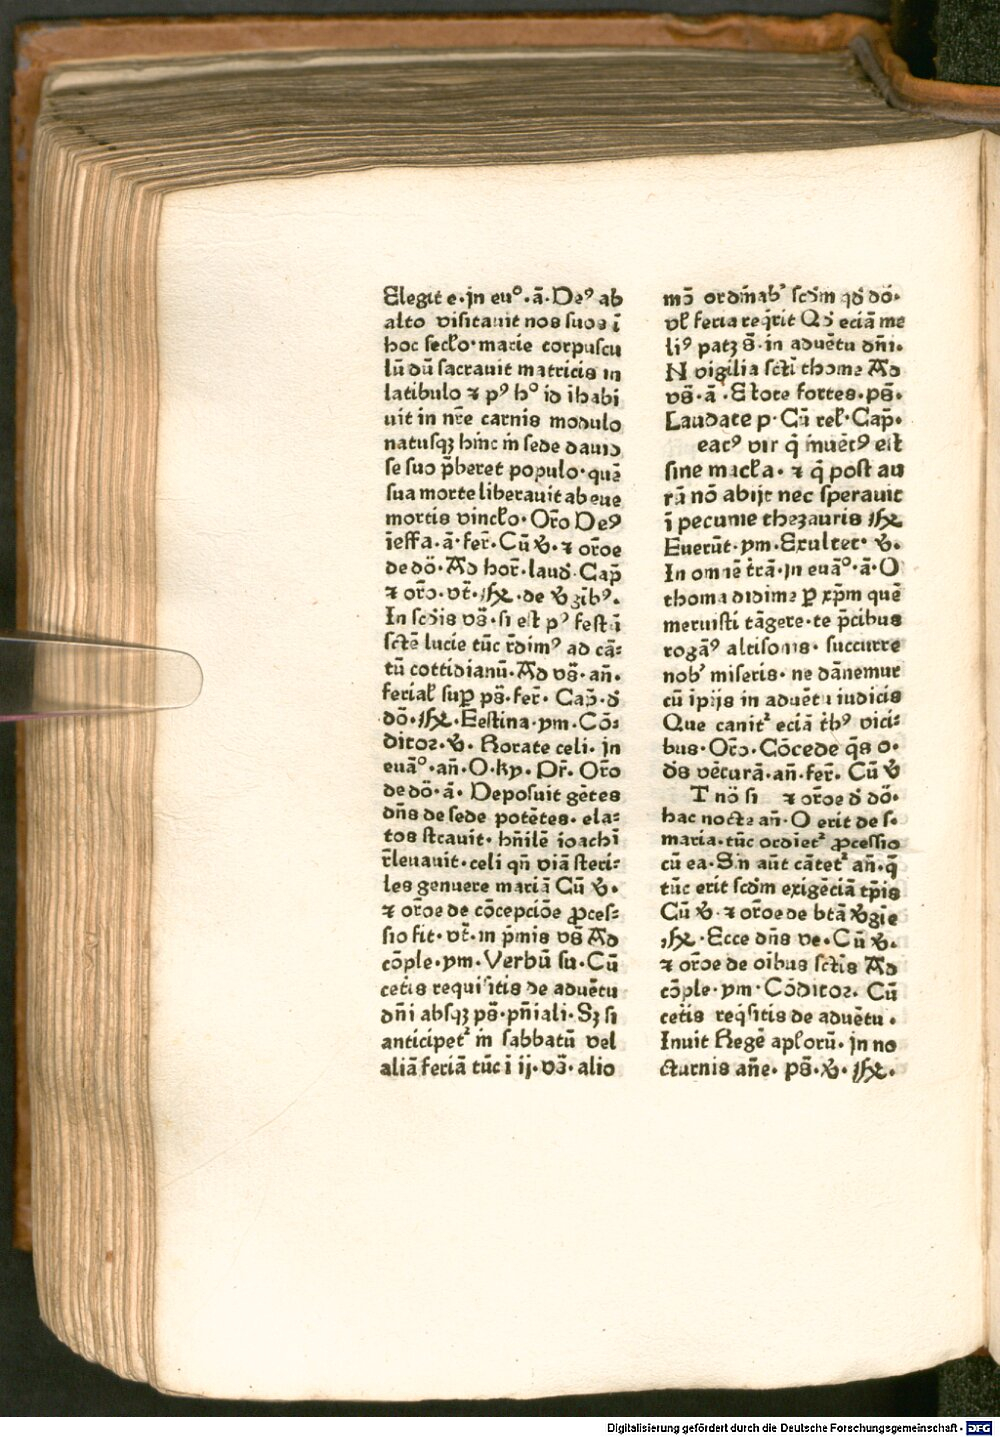 Elegit e·jn eu°·ā·Deꝰ ab
alto visitauit nos suos ī
hoc secło·marie corpuscu
lū dū sacrauit matricis in
latibulo ⁊ pꝰ h° id ihabi
uit in nr̄e carnis modulo
natusqꝫ hinc in sede dauid
se suo p̄beret populo·quē
sua morte liberauit ab eue
mortis vincło·Or̄o Deꝰ
ieffa·ā·fer̄·Cū ꝟ·⁊ or̄oe
de dō·Ad hor̄·laud·Cap̄
⁊ or̄o·vt̄·℞·de ꝟgībꝰ·
In scd̄is vs̄·si est pꝰ festū
sctē lucie tūc r̄dimꝰ ad cā-
tū cottidianū·Ad vs̄·an̄·
ferial̄ suꝑ ps̄·fer̄·Cap̄·d̄
dō·℞·Festina·ym·Cō-
ditor·ꝟ·Rorate celi·jn
euā°·an̄·O·ky·Pr̄·Or̄o
de dō·ā·Deposuit gētes
dn̄s de sede potētes·ela-
tos stcauit·hn̄ilē ioachī
r̄leuauit·celi qn̄ viā steri-
les genuere mariā Cū ꝟ·
⁊ or̄oe de cōcepciōe ꝓces-
sio fit·vt̄·in p̄mis vs̄ Ad
cōple·ym·Verbū su·Cū
cet̄is requisitis de aduētu
dn̄i absqꝫ ps̄·pn̄iali·Sꝫ si
anticipet² in sabbatū vel
aliā feriā tūc i ij·vō·alio
mō ordinabᷣ scd̄m qd̄ dō·
vl̄ feria reqr̄it Qd̄ eciā me
liꝰ patꝫ s̄·in aduētu dn̄i·
N vigilia sctī thome Ad
vs̄·ā·Estote fortes·ps̄·
Laudate p·Cū rel̄·Cap̄·
eatꝰ vir q̄ inuētꝰ est
sine macła·⁊ q̄ post au
rū nō abijt nec sperauit
ī pecunie thezauris ℞
Euerūt·ym·Exultet·ꝟ·
In omnē t̄rā·jn euā°·ā·O
thoma didime ꝑ xp̄m quē
meruisti tāgere·te p̄cibus
rogāꝰ altisonis·succurre
nobᷣ miseris·ne dānemur
cū ipijs in aduētu iudicis
Que canit² eciā tb̄ꝰ vici-
bus·Or̄o·Cōcede qs̄ o·
ds̄ vēturā·an̄·fer̄·Cū ꝟ
T nō si ⁊ or̄oe d̄ dō·
hac nocte an̄·O erit de s·
maria·tūc ordiet² ꝓcessio
cū ea·Sin aūt cātet² an̄·q̄
tūc erit scd̄m exigēciā tp̄is
Cū ꝟ·⁊ or̄oe de btā ꝟgīe
℞·Ecce dn̄s ve·Cū ꝟ·
⁊ or̄oe de oībus sctīs Ad
cōple·ym·Cōditor·Cū
cet̄is reqsitis de aduētu·
Inuit Regē apl̄orū·jn no
cturnis an̄e·ps̄·ꝟ·℞·
Digitalisierung gefördert durch die Deutsche Forschungsgemeinschaft - DFG